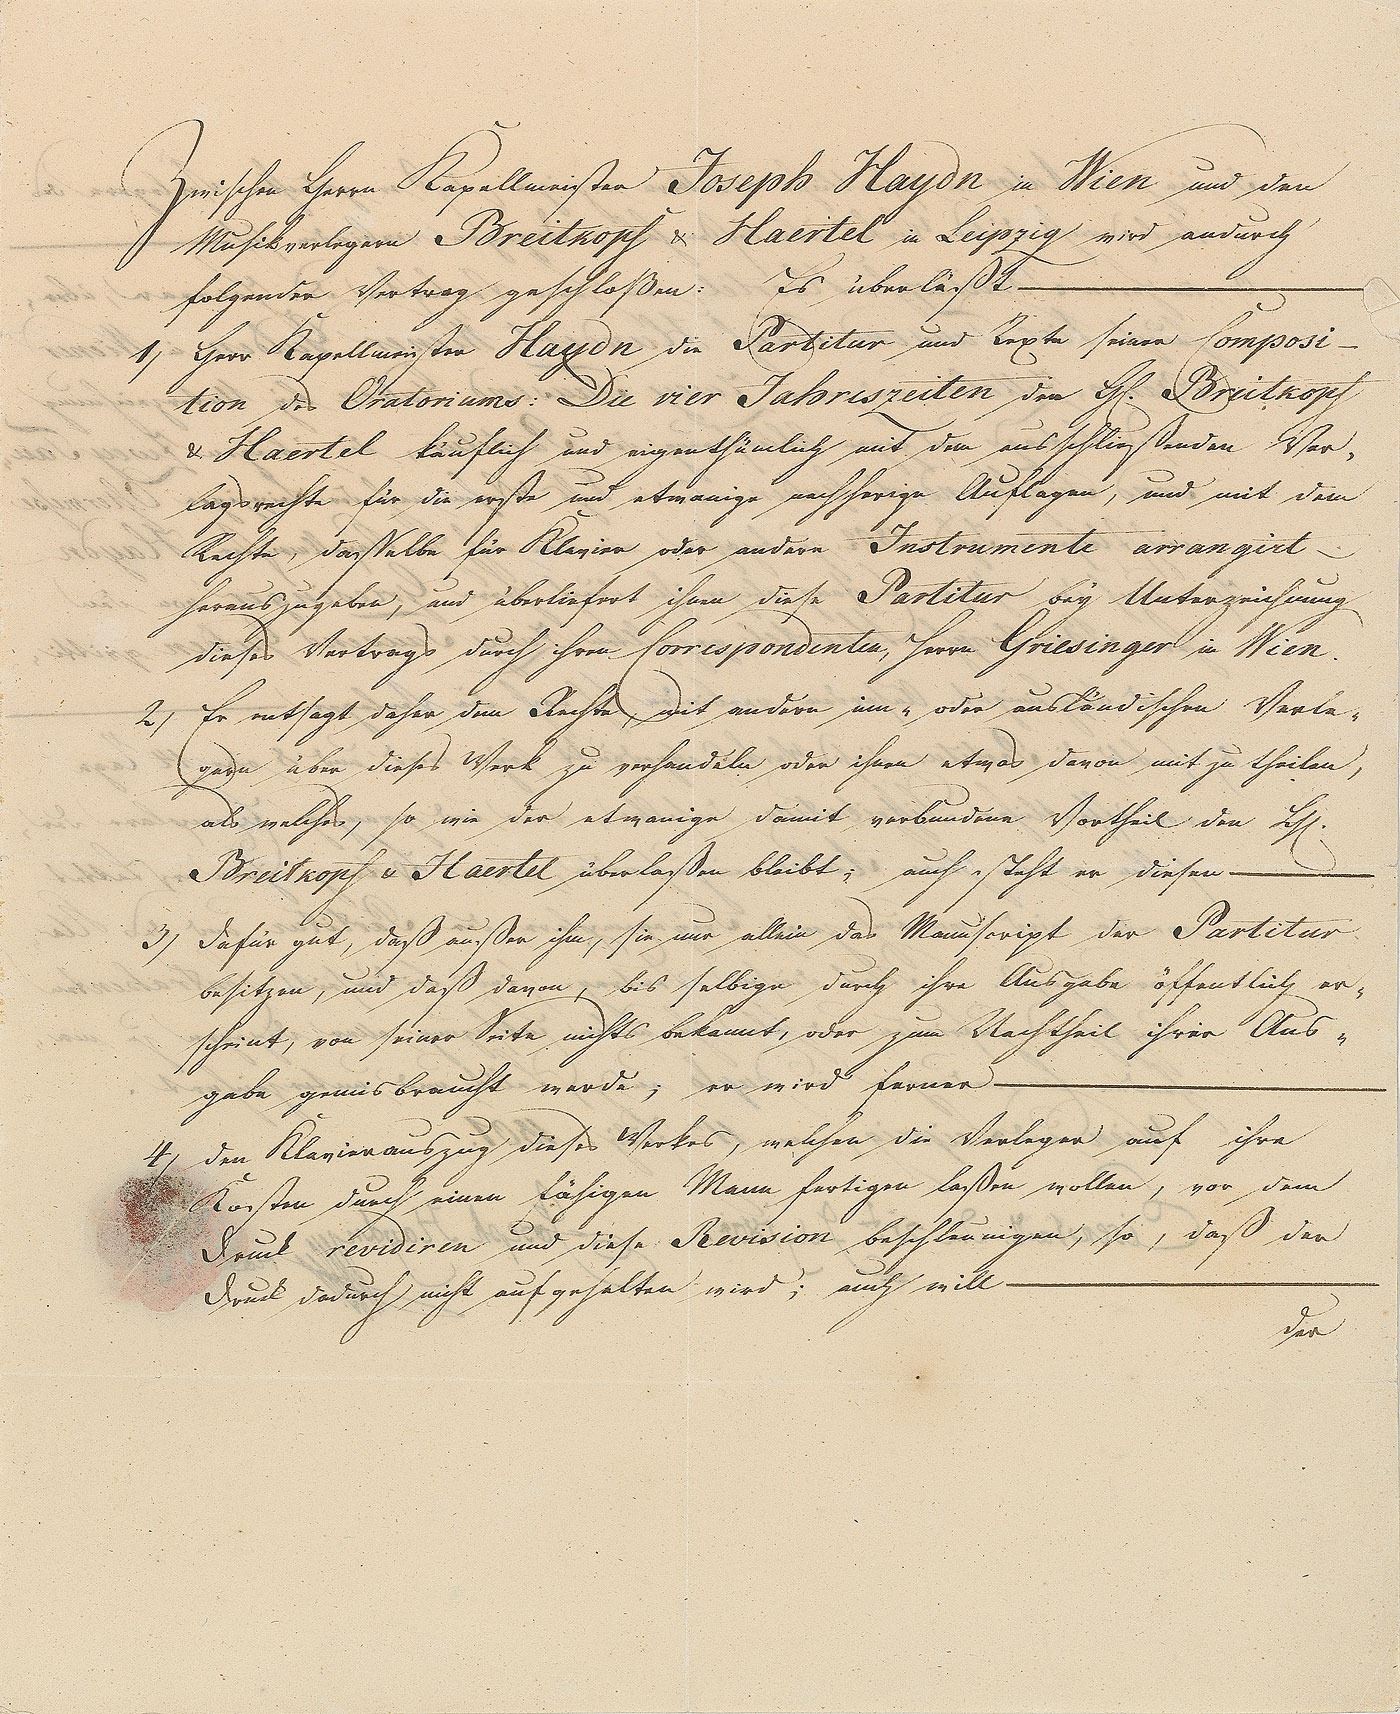 Zwischen Herrn Kapellmeister Joseph Haydn in Wien und den
Musikverlegern Breitkopf & Haertel in Leipzig wird andurch
folgender Vertrag geschloßen: Es überläßt
1) Herr Kapellmeister Haydn die Partitur und Texte seiner Composi-
tion des Oratoriums: Die vier Jahreszeiten den HH. Breitkopf
& Haertel käuflich und eigenthümlich mit dem ausschließenden Ver-
lagsrechte für die erste und etwanige nachherige Auflagen, und mit dem
Rechte, dasselbe für Klavier oder andere Instrumente arrangirt
herauszugeben, und überliefert ihnen diese Partitur bey Unterzeichnung
dieses Vertrags durch ihren Correspondenten, Herrn Griesinger in Wien.
2) Er entsagt daher dem Rechte, mit andern inn- oder ausländischen Verle-
gern über dieses Werk zu verhandeln oder ihnen etwas davon mit zu theilen,
als welches, so wie der etwanige damit verbundene Vortheil den HH.
Breitkopf & Haertel überlaßen bleibt; auch steht er diesen
3) dafür gut, daß außer ihm, sie nur allein das Manuscript der Partitur
besitzen, und daß davon, bis selbige durch ihre Ausgabe öffentlich er-
scheint, von seiner Seite nichts bekannt, oder zum Nachtheil ihrer Aus-
gabe gemisbraucht werde; er wird ferner
4) den Klavierauszug dieses Werkes, welchen die Verleger auf ihre
Kosten durch einen fähigen Mann fertigen laßen wollen, vor dem
Druck revidiren und diese Revision beschleunigen, so, daß der
Druck dadurch nicht aufgehalten wird; auch will
der